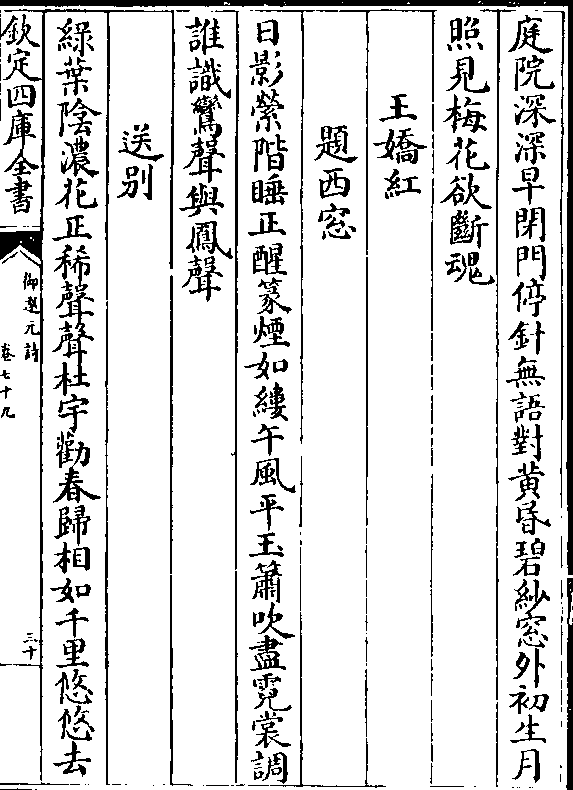 庭院深深早閉門停針無語對黄昏碧紗窓外初生月
照見梅花欲斷魂
王嬌紅
題西窓
日影縈階睡正醒篆煙如縷午風平玉簫吹盡霓裳調
誰識鸞聲與鳳聲
送别
綠葉陰濃花正稀聲聲杜宇勸春歸相如千里悠悠去
欽定四庫全書
御選元詩
卷七十九
三十